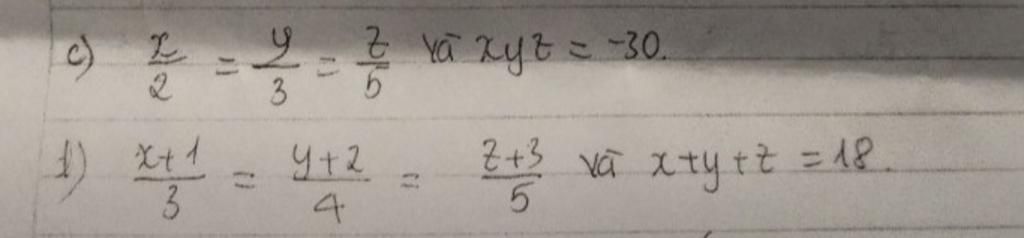 c) x/2 = y/3 = z/5 và xyz = -30.
d) x+1/3 = y+2/4 = z+3/5 và x+y+z = 18.